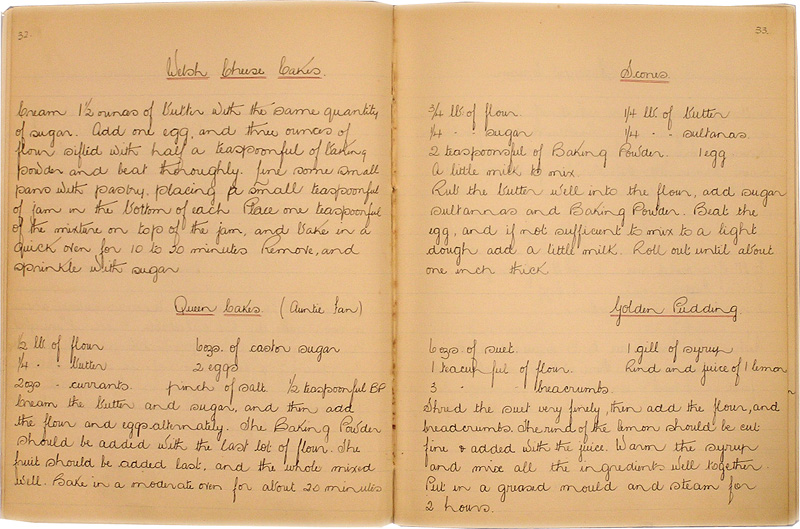 32.
Welsh Cheese Cakes.
Cream 1½ ounces of butter with the same quantity
of sugar. Add one egg, and three ounces of
flour sifted with half a teaspoonful of baking
powder and beat thoroughly. Line some small
pans with pastry, placing a small teaspoonful
of jam in the bottom of each Place one teaspoonful
of the mixture on top of the jam, and bake in a
quick oven for 10 to 20 minutes Remove, and
sprinkle with sugar
Queen Cakes. (Auntie Fan)
½ lb. of flour 6ozs. of castor sugar
¼ " " butter 2 eggs
2ozs " currants. pinch of salt. ½ teaspoonful BP
Cream the butter and sugar, and then add
the flour and eggs alternately. The Baking Powder
should be added with the last lot of flour. The
fruit should be added last, and the whole mixed
well. Bake in a moderate oven for about 20 minutes
33.
Scones.
¾ lb of flour. 1/4 lb. of butter
¼ " " sugar 1/4 " " sultanas.
2 teaspoonsful of Baking Powder. 1 egg
A little milk to mix.
Rub the butter well into the flour, add sugar
sultannas and Baking Powder. Beat the
egg, and if not sufficient to mix to a light
dough add a little milk. Roll out until about
one inch thick
Golden Pudding.
6ozs of suet. 1 gill of syrup
1 teacupful of flour. Rind and juice of 1 lemon
3 " " breacrumbs.
Shred the suet very finely, then add the flour, and
breadcrumbs. The rind of the lemon should be cut
fine & added with the juice. Warm the syrup
and mix all the ingredients well together.
Put in a greased mould and steam for
2 hours.